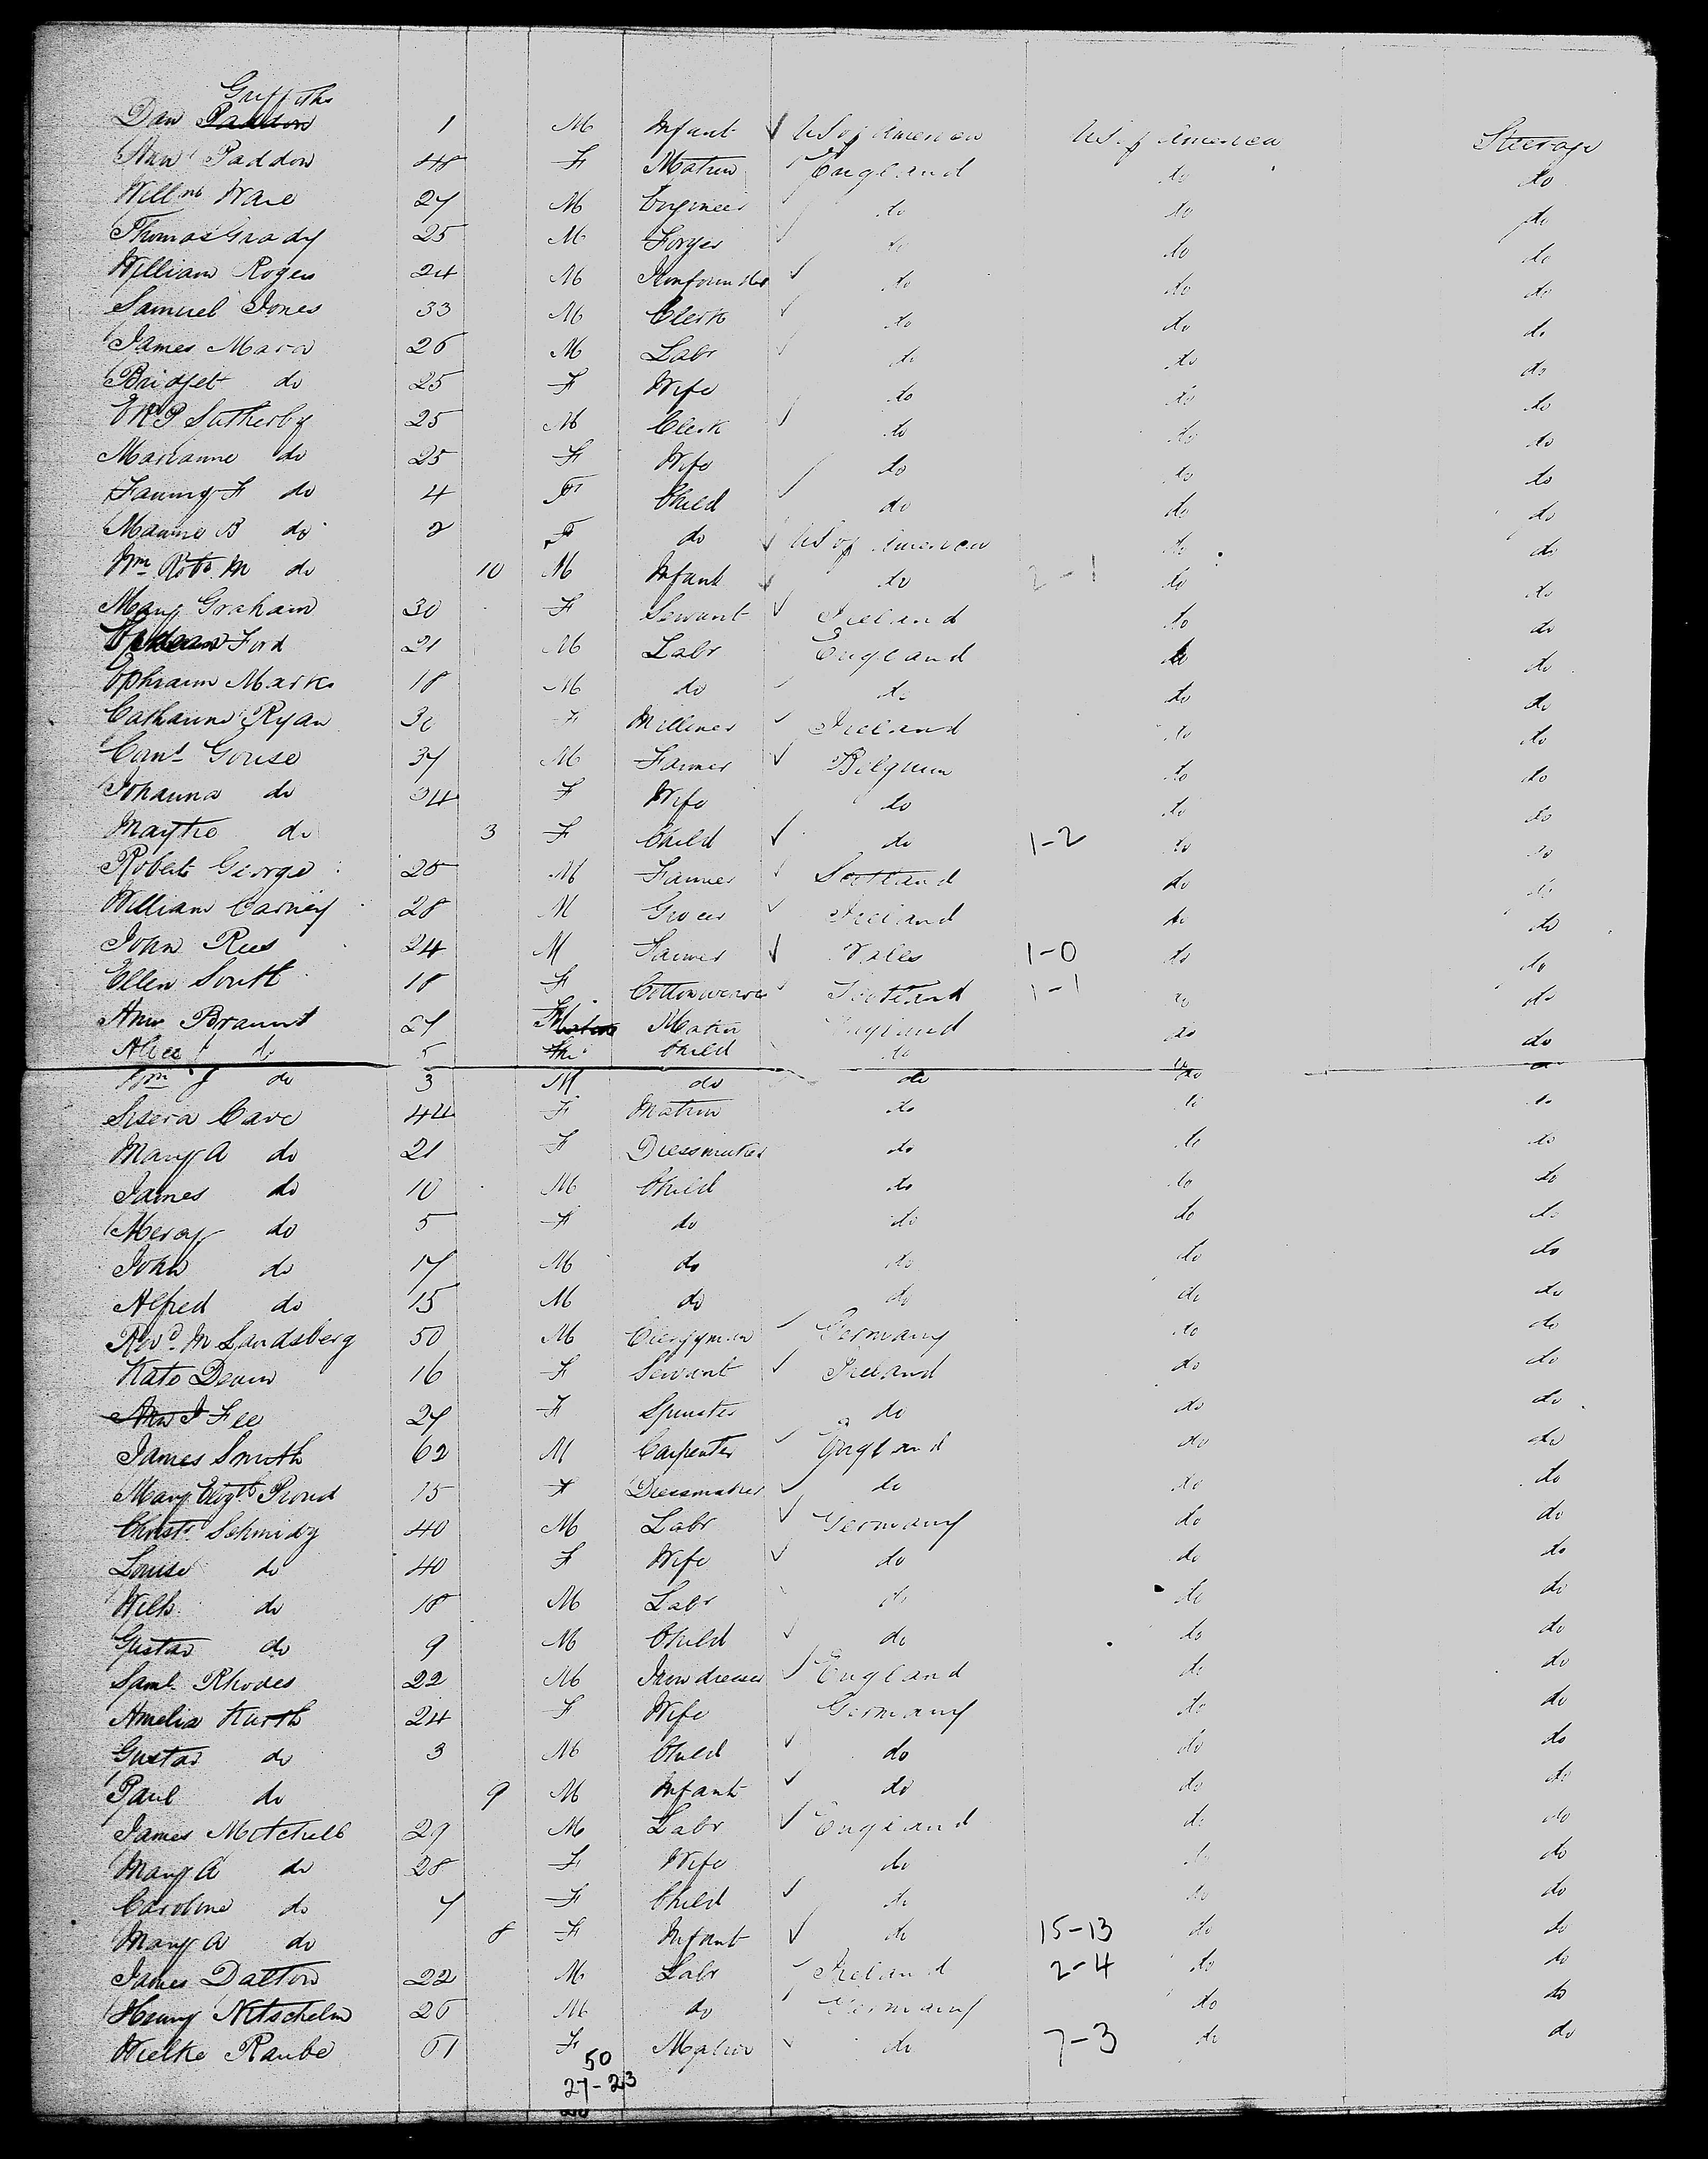 Griffiths
Dan Paddon 1 M Infant US of America US of America Steerage
Ann Paddon 48 F Matron England do do
Willm Ware 27 M Engineer do do do
Thomas Grady 25 M Forger do do do
William Rogers 24 M Ironfounder do do do
Samuel Jones 33 M Clerk do do do
James Mara 26 M Labr do do do
Bridget do 25 F Wife do do do
Sutherby 25 M Clerk do do do
Marianne do 25 F Wife do do do
Fanny F do 4 F Child do do do
Mannie B do 2 F do US of America do do
Wm Robt M do 10 M Infant do 2-1 do do
Mary Graham 30 F Servant Ireland do do
Ford 21 M Labr England do do
Ephraim Marks 18 M do do do do
Catharine Ryan 30 F Milliner Ireland do do
Gouse 37 M Farmer Belgium do do
Johanna do 34 F Wife do do do
do 3 F Child do 1-2 do do
Robert George 25 M Farmer Scotland do do
William Carney 28 M Grocer Ireland do do
John Rees 24 M Farmer Wales 1-0 do do
Ellen South 18 F Cottonweaver Scotland 1-1 do do
Ann 27 F Matron England do do
Alice do 5 Child do do do
Wm J do 3 M do do do do
Cave 44 F Matron do do do
Mary A do 21 F Dressmaker do do do
James do 10 M Child do do do
Mercy do 5 F do do do do
John do 17 M do do do do
Alfred do 15 M do do do do
Revd M Landsberg 50 M Clergyman Germany do do
Kate 16 F Servant Ireland do do
Ann J Fee 27 F Spinster do do do
James Smith 62 M Carpenter England do do
Mary Elizth Proud 15 F Dressmaker do do do
Christr Schmidy 40 M Labr Germany do do
Louise do 40 F Wife do do do
Wilh do 18 M Labr do do do
Gustav do 9 M Child do do do
Saml Rhodes 22 M Irondresser England do do
Amelia Kurth 24 F Wife Germany do do
Gustav do 3 M Child do do do
Paul do 9 M Infant do do do
James Mitchell 29 M Labr England do do
Mary A do 28 F Wife do do do
Caroline do 7 F Child do do do
Mary A do 8 F Infant do 15-13 do do
James Dalton 22 M Labr Ireland 2-4 do do
Henry Nitschelm 26 M do Germany do do
Wielke Raube 61 F Matron do 7-3 do do
50
27-23